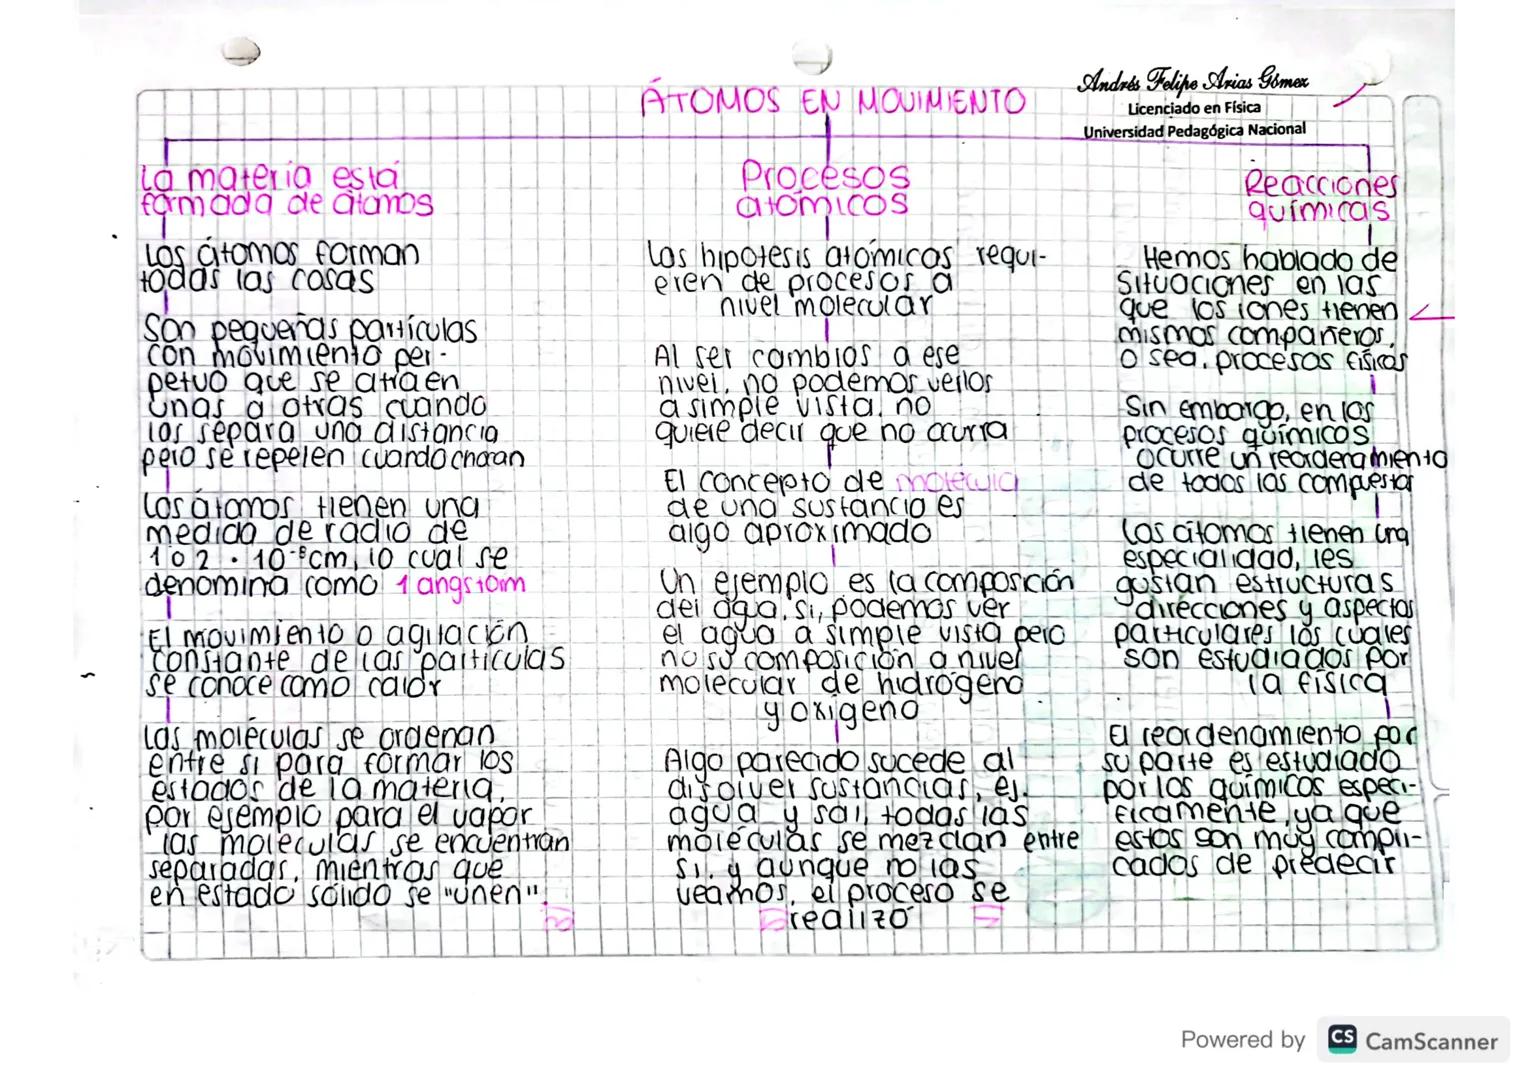 ÁTOMOS EN MOVIMIENTO
Andrés Felipe Arias Gómez
Licenciado en Física
Universidad Pedagógica Nacional
La materia está
formada de átomos
Los átomos forman
todas las cosas
Son pequeñas partículas
con movimiento per-
petuo que se atraen
unas a otras cuando
las separa una distancia
pero se repelen cuando chocan
Los átomos tienen una
medida de radio de
1 o 2 · 10⁻⁸cm, lo cual se
denomina como 1 angstom
El movimiento o agitación
constante de las partículas
se conoce como calor
Las moléculas se ordenan
entre si para formar los
estados de la materia,
por ejemplo para el vapor
las moleculas se encuentran
separadas, mientras que
en estado sólido se "unen".
Procesos
atómicos
Las hipotesis atómicas requi-
eren de procesos a
nivel molecular
Al ser cambios a ese
nivel, no podemos verlos
a simple vista, no
quiere decir que no ocurra
El concepto de molécula
de una sustancia es
algo aproximado
Un ejemplo es la composición
del agua, si, podemos ver
el agua a simple vista pero
no su composición a nivel
molecular de hidrógeno
y oxígeno
Algo parecido sucede al
disolver sustancias, ej.
agua y sal, todas las
moléculas se mezclan entre
si, y aunque no las
veamos, el proceso se
realizó
Reacciones
químicas
Hemos hablado de
situaciones en las
que los iones tienen
mismos compañeros,
o sea, procesos físicos
Sin embargo, en los
procesos químicos
ocurre un reordenamiento
de todos los compuestos
Los átomos tienen una
especialidad, les
gustan estructuras
direcciones y aspectos
particulares los cuales
son estudiados por
la física
El reordenamiento por
su parte es estudiado
por los químicos especi-
ficamente, ya que
estos son muy compli-
cados de predecir
Powered by CS CamScanner